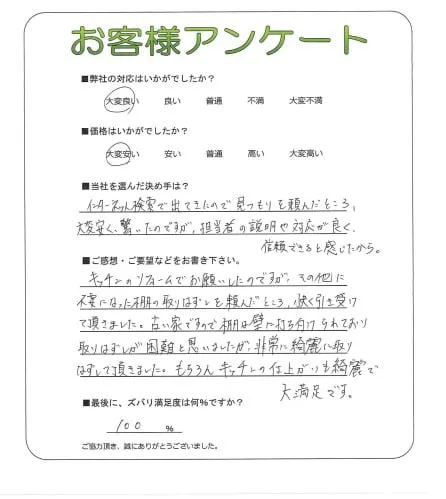 お客様アンケート
■弊社の対応はいかがでしたか?
大変良い 良い 普通 不満 大変不満
■価格はいかがでしたか?
大変安い 安い 普通 高い 大変高い
■当社を選んだ決め手は?
インターネット検索で出てきたので見つもりを頼んだところ、
大変安く、驚いたのですが、担当者の説明や対応が良く、
信頼できると感じたから。
■ご感想・ご要望などをお書き下さい。
キッチンのリフォームでお願いしたのですが、その他に
不要になった棚の取りはずしを頼んだところ、快く引き受け
て頂きました。古い家ですので棚は壁に打ち付けられており
取りはずしが困難と思いましたが、非常に綺麗に取り
はずして頂きました。もちろんキッチンの仕上がりも綺麗で
大満足です。
■最後に、ズバリ満足度は何%ですか?
100 %
ご協力頂き、誠にありがとうございました。